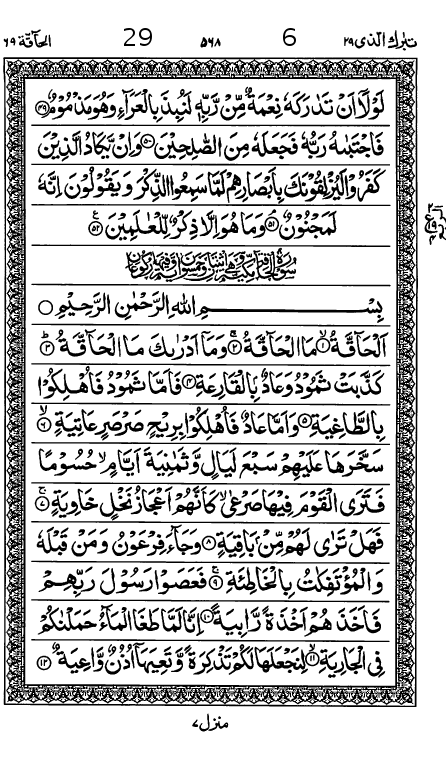 تبٰرك الذی ٢٩ 6 ٥٦٨ 29 الحآقة ٦٩
لَوْلَاۤ اَنْ تَدٰرَكَهٗ نِعْمَةٌ مِّنْ رَّبِّهٖ لَنُبِذَ بِالْعَرَآءِ وَهُوَ مَذْمُوْمٌ ﴿٤٩﴾
فَاجْتَبٰىهُ رَبُّهٗ فَجَعَلَهٗ مِنَ الصّٰلِحِيْنَ ﴿٥٠﴾ وَاِنْ يَّكَادُ الَّذِيْنَ
كَفَرُوْا لَيُزْلِقُوْنَكَ بِاَبْصَارِهِمْ لَمَّا سَمِعُوا الذِّكْرَ وَيَقُوْلُوْنَ اِنَّهٗ
لَمَجْنُوْنٌ ﴿٥١﴾ وَمَا هُوَ اِلَّا ذِكْرٌ لِّلْعٰلَمِيْنَ ﴿٥٢﴾
بِسْمِ اللهِ الرَّحْمٰنِ الرَّحِيْمِ
اَلْحَآقَّةُ ﴿١﴾ مَا الْحَآقَّةُ ﴿٢﴾ وَمَاۤ اَدْرٰىكَ مَا الْحَآقَّةُ ﴿٣﴾
كَذَّبَتْ ثَمُوْدُ وَعَادٌۢ بِالْقَارِعَةِ ﴿٤﴾ فَاَمَّا ثَمُوْدُ فَاُهْلِكُوْا
بِالطَّاغِيَةِ ﴿٥﴾ وَاَمَّا عَادٌ فَاُهْلِكُوْا بِرِيْحٍ صَرْصَرٍ عَاتِيَةٍ ﴿٦﴾
سَخَّرَهَا عَلَيْهِمْ سَبْعَ لَيَالٍ وَّثَمٰنِيَةَ اَيَّامٍ حُسُوْمًا
فَتَرَى الْقَوْمَ فِيْهَا صَرْعٰى كَاَنَّهُمْ اَعْجَازُ نَخْلٍ خَاوِيَةٍ ﴿٧﴾
فَهَلْ تَرٰى لَهُمْ مِّنْۢ بَاقِيَةٍ ﴿٨﴾ وَجَآءَ فِرْعَوْنُ وَمَنْ قَبْلَهٗ
وَالْمُؤْتَفِكٰتُ بِالْخَاطِئَةِ ﴿٩﴾ فَعَصَوْا رَسُوْلَ رَبِّهِمْ
فَاَخَذَهُمْ اَخْذَةً رَّابِيَةً ﴿١٠﴾ اِنَّا لَمَّا طَغَا الْمَآءُ حَمَلْنٰكُمْ
فِی الْجَارِيَةِ ﴿١١﴾ لِنَجْعَلَهَا لَكُمْ تَذْكِرَةً وَّتَعِيَهَاۤ اُذُنٌ وَّاعِيَةٌ ﴿١٢﴾
منزل ٧